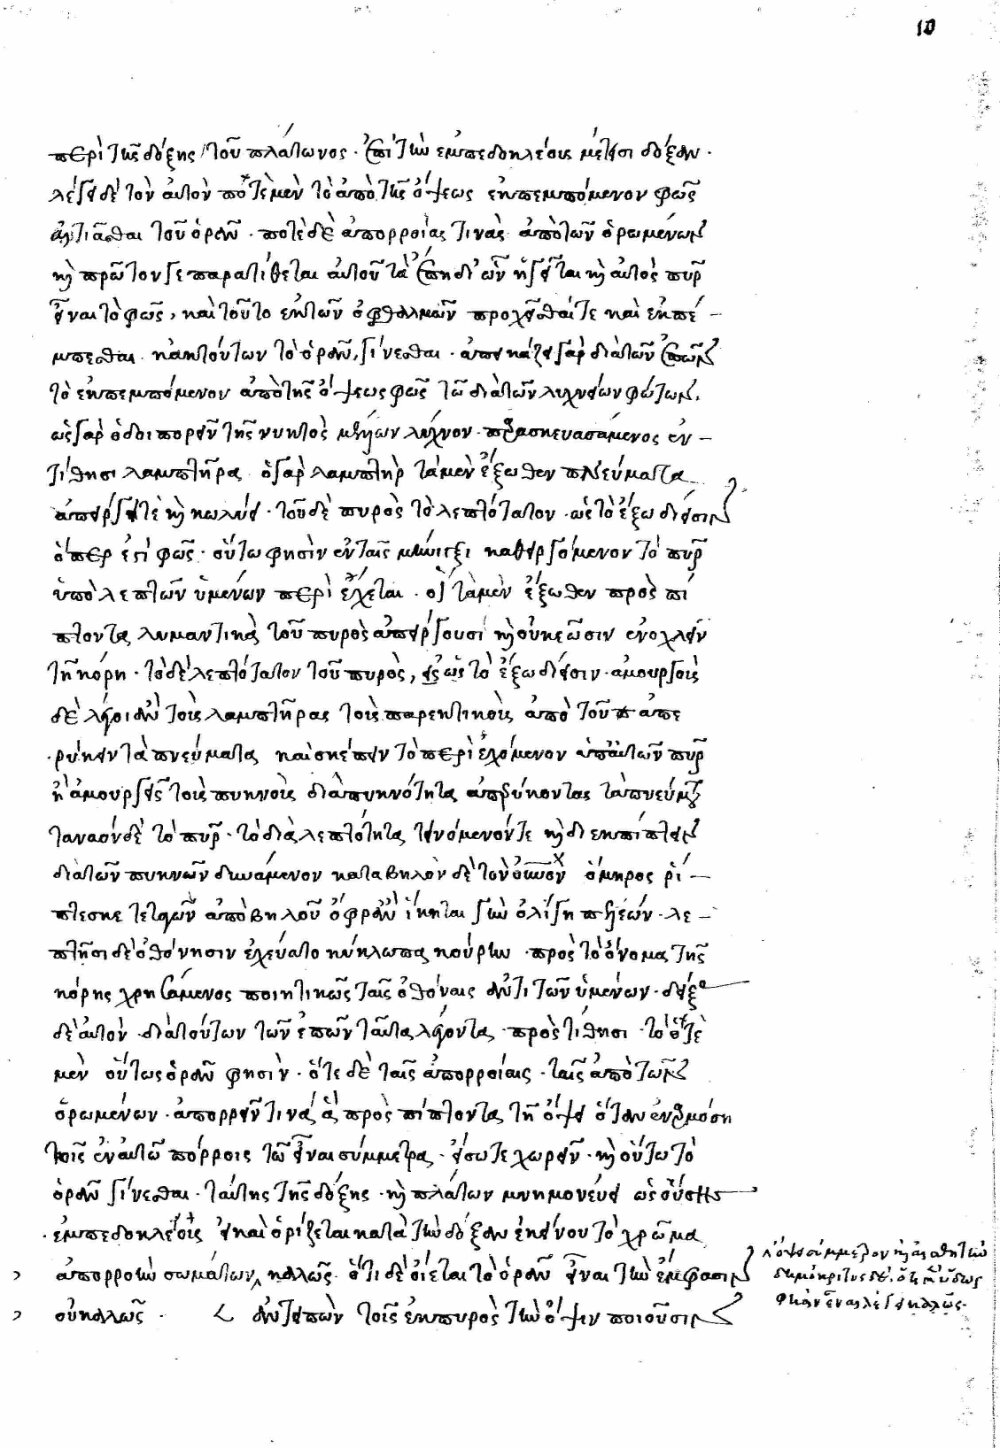 10
περὶ τῆς δόξης τοῦ πλάτωνος. ἐπὶ τὴν ἐμπεδοκλέους μέτεισι δόξαν.
λέγει δὲ τὸν αὐτὸν ποτὲ μὲν τὸ ἀπὸ τῆς ὄψεως ἐκπεμπόμενον φῶς
αἰτιᾶσθαι τοῦ ὁρᾶν. ποτὲ δὲ ἀπορροίας τινὰς ἀπὸ τῶν ὁρωμένων
καὶ πρῶτόν γε παρατίθεται αὐτοῦ τὰ ἔπη δι' ὧν ἡγεῖται καὶ αὐτὸς πῦρ
εἶναι τὸ φῶς, καὶ τοῦτο ἐκ τῶν ὀφθαλμῶν προχεῖσθαί τε καὶ ἐκπέ-
μπεσθαι. κἀκ τούτων τὸ ὁρᾶν γίνεσθαι. ἀπεικάζει γὰρ διὰ τῶν ἐπῶν
τὸ ἐκπεμπόμενον ἀπὸ τῆς ὄψεως φῶς τῷ διὰ τῶν λυχνείων φώτων.
ὡς γὰρ ὁδοιπορεῖν τῆς νυκτὸς μέλλων λύχνον παρασκευασάμενος ἐν-
τίθησι λαμπτῆρα. ὁ γὰρ λαμπτὴρ τὰ μὲν ἔξωθεν πνεύματα
ἀπείργει τὲ καὶ κωλύει. τοῦ δὲ πυρὸς τὸ λεπτότατον εἰς τὸ ἔξω διίησιν
ὅπερ ἐστὶ φῶς. οὕτω φησὶν ἐν ταῖς μήνιγξι καθειργόμενον τὸ πῦρ
ὑπὸ λεπτῶν ὑμένων περὶ ἔχεται. οἳ τὰ μὲν ἔξωθεν προσπί
πτοντα λυμαντικὰ τοῦ πυρὸς ἀπείργουσι καὶ οὐκ ἐῶσιν ἐνοχλεῖν
τῇ κόρῃ. τὸ δὲ λεπτότατον τοῦ πυρὸς, εἰς τὸ ἔξω διίησιν. ἀμουργοὺς
δὲ λέγοι ἂν τοὺς λαμπτῆρας τοὺς παρεκτικοὺς ἀπὸ τοῦ ἀπε
ρύκειν τὰ πνεύματα καὶ σκέπειν τὸ περὶ ἐχόμενον ὑπ' αὐτῶν πῦρ
ἢ ἀμουργεῖς τοὺς πυκνοὺς διὰ πυκνότητα ἀπερύκοντας τὰ πνεύματα
ταναὸν δὲ τὸ πῦρ. τὸ διὰ λεπτότητα τεινόμενόν τε καὶ διεκπίπτειν
διὰ τῶν πυκνῶν δυνάμενον κατα βηλὸν δὲ τὸν οὐρανὸν ὅμηρος ῥί-
πτεσκε τεταγὼν ἀπὸ βηλοῦ ὄφρ' ἂν ἵκηται γῆν ὀλιγηπελέων. λε-
πτῇσι δὲ ὀθόνῃσιν ἐχεύατο κύκλωπα κούρην. πρὸς τὸ ὄνομα τῆς
κόρης χρησάμενος ποιητικῶς ταῖς ὀθόναις ἀντὶ τῶν ὑμένων. δείξας
δὲ αὐτὸν διὰ τούτων τῶν ἐπῶν ταῦτα λέγοντα. προστίθησι τὸ ὁτὲ
μὲν οὕτως ὁρᾶν φησίν. ὅτε δὲ ταῖς ἀπορροίαις. ταῖς ἀπὸ τῶν
ὁρωμένων. ἀπορρεῖν τινά, ἃ προσπίπτοντα τῇ ὄψει ὅταν ἐναρμόσῃ
τοῖς ἐν αὐτῷ πόρροις τῷ εἶναι σύμμετρα. εἴσω τε χωρεῖν. καὶ οὕτω τὸ
ὁρᾶν γίνεσθαι. ταύτης τῆς δόξης. καὶ πλάτων μνημονεύει ὡς οὔσης
ἐμπεδοκλέους καὶ ὁρίζεται κατὰ τὴν δόξαν ἐκείνου τὸ χρῶμα
ἀπορροὴν σωμάτων καλῶς. ὅτι δὲ οἴεται τὸ ὁρᾶν εἶναι τὴν ἔμφασιν
οὐ καλῶς. ἀντειπὼν τοῖς ἐκ πυρὸς τὴν ὄψιν ποιοῦσιν
ὄψει σύμμετρον καὶ αἰσθητὴν
δημόκριτος δὲ. ὅτι μὲν ὕδωρ
φησὶν εἶναι λέγει καλῶς.